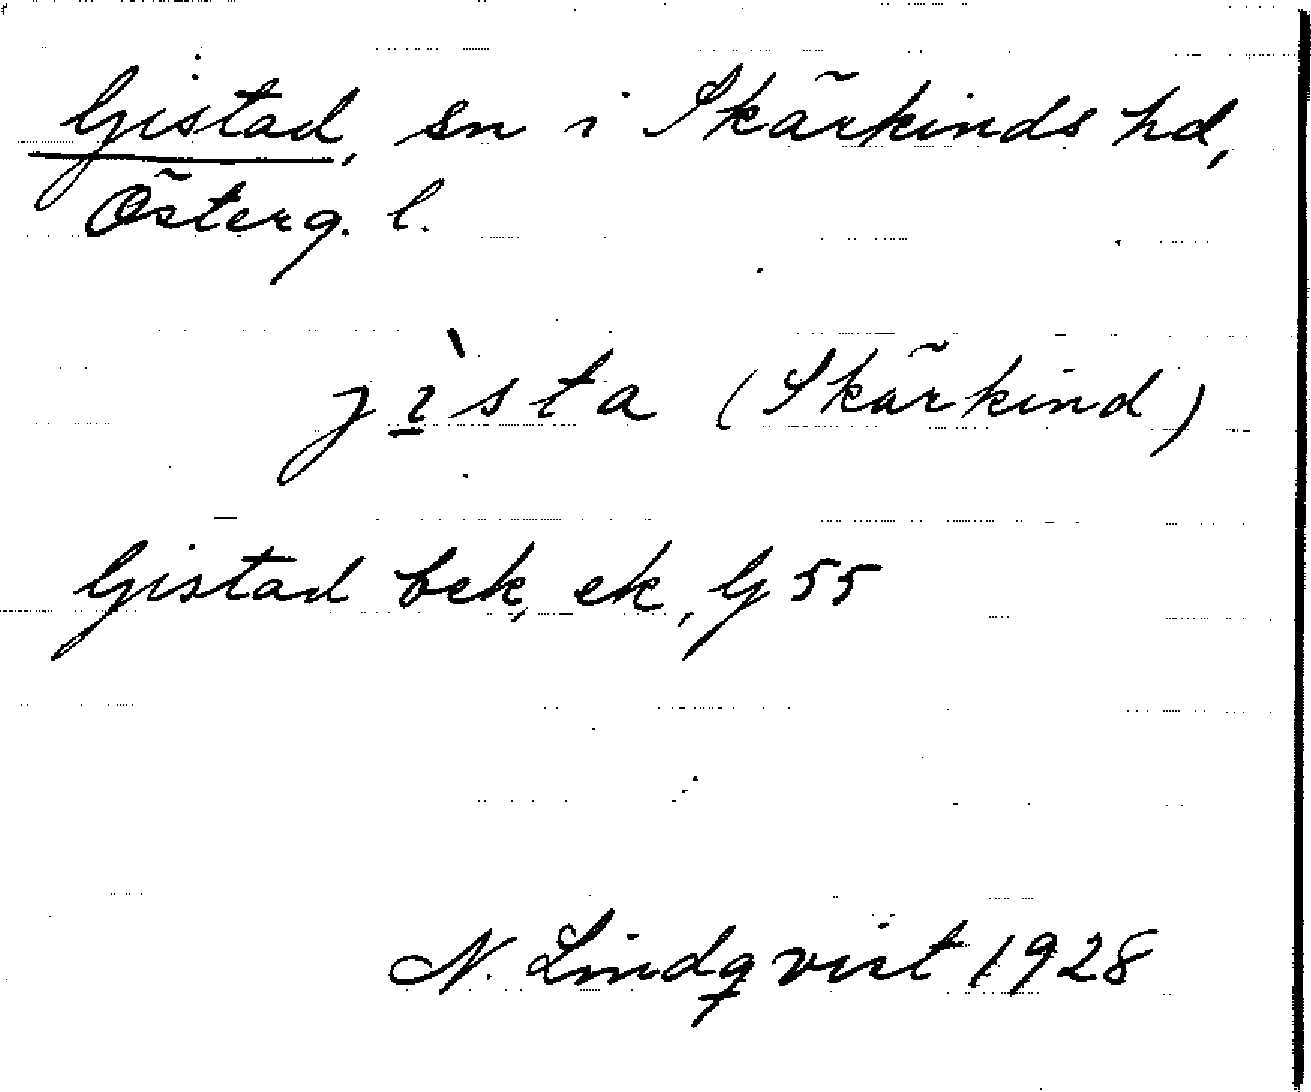 Gistad, sn i Skärkinds hd,
Österg. l.
jı̱̀sta (Skärkind)
Gistad bek, ek, G 55
N. Lindqvist 1928